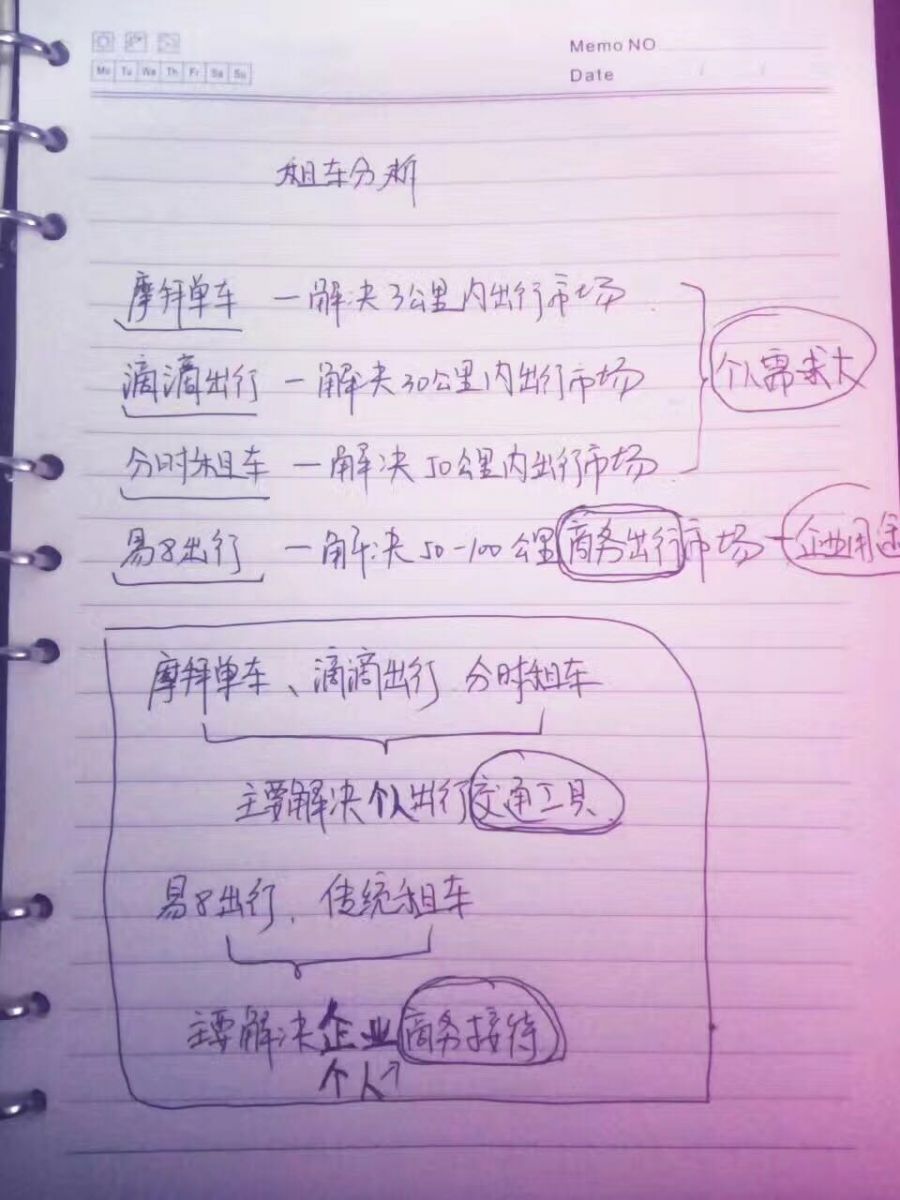 Memo NO
Mo Tu We Th Fr Sa Su
Date / /
租车分析
摩拜单车 一解决3公里内出行市场
滴滴出行 一解决30公里内出行市场
个人需求大
分时租车 一解决50公里内出行市场
易8出行 一解决50-100公里商务出行市场-企业用途
摩拜单车、滴滴出行 分时租车
主要解决个人出行交通工具
易8出行、传统租车
主要解决企业商务接待
个人